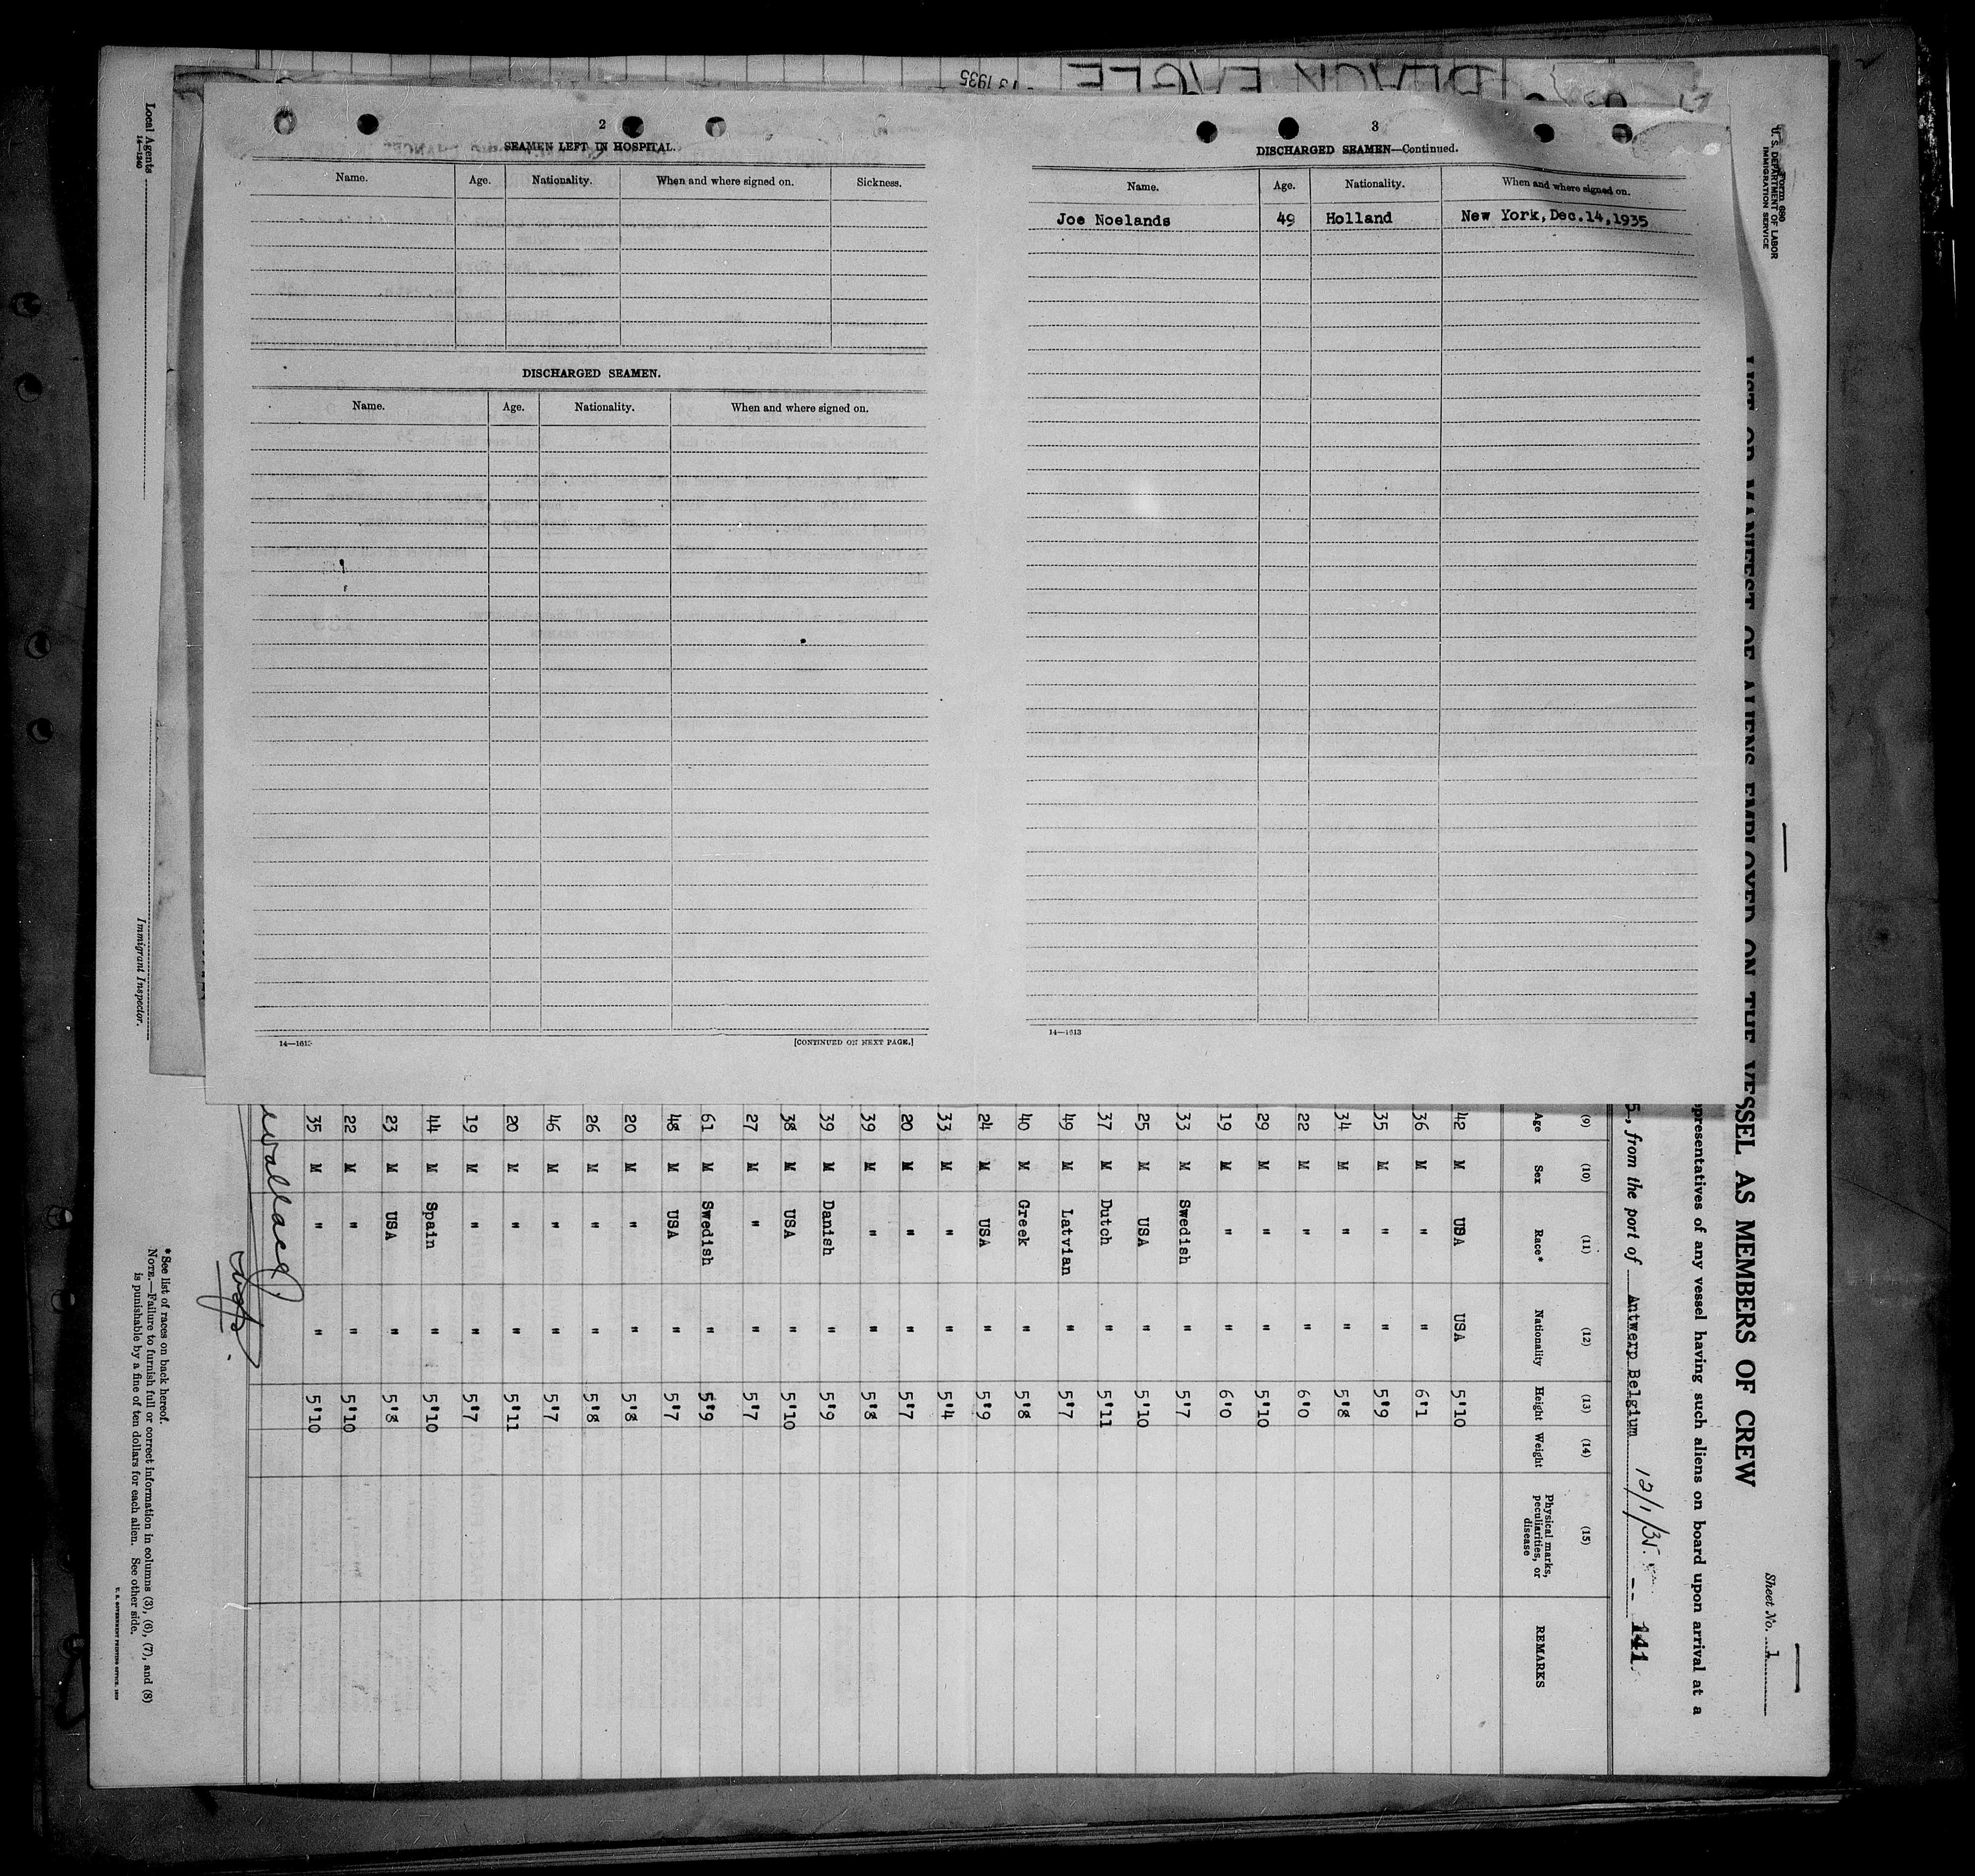 2
SEAMEN LEFT IN HOSPITAL.
Name. Age. Nationality. When and where signed on. Sickness.
DISCHARGED SEAMEN.
Name. Age. Nationality. When and where signed on.
14—1613
[CONTINUED ON NEXT PAGE.]
3
DISCHARGED SEAMEN—Continued.
Name. Age. Nationality. When and where signed on.
Joe Noelands 49 Holland New York, Dec.14,1935
14—1613
13 1935
BLACK EAGLE
Form 680
U. S. DEPARTMENT OF LABOR
IMMIGRATION SERVICE
Sheet No. 1
LIST OR MANIFEST OF ALIENS EMPLOYED ON THE VESSEL AS MEMBERS OF CREW
representatives of any vessel having such aliens on board upon arrival at a
5, from the port of Antwerp Belgium 12/1/35. -- 141.
(9) (10) (11) (12) (13) (14) (15)
Age Sex Race* Nationality Height Weight Physical marks, peculiarities, or disease REMARKS
42 M USA USA 5'10
36 M " " 6'1
35 M " " 5'9
34 M " " 5'8
22 M " " 6'0
29 M " " 5'10
19 M " " 6'0
33 M Swedish " 5'7
25 M USA " 5'10
37 M Dutch " 5'11
49 M Latvian " 5'7
40 M Greek " 5'8
24 M USA " 5'9
33 M " " 5'4
20 M " " 5'7
39 M " " 5'8
39 M Danish " 5'9
38 M USA " 5'10
27 M " " 5'7
61 M Swedish " 5'9
48 M USA " 5'7
20 M " " 5'8
26 M " " 5'8
46 M " " 5'7
20 M " " 5'11
19 M " " 5'7
44 M Spain " 5'10
23 M USA " 5'8
22 M " " 5'10
35 M " " 5'10
*See list of races on back hereof.
NOTE.—Failure to furnish full or correct information in columns (3), (6), (7), and (8)
is punishable by a fine of ten dollars for each alien. See other side.
U. S. GOVERNMENT PRINTING OFFICE
Local Agents
14—1240
Immigrant Inspector.